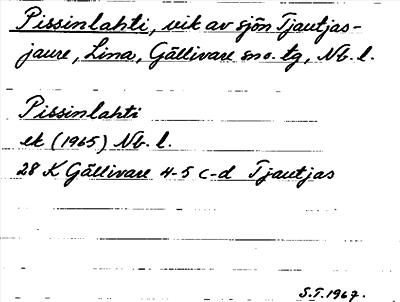 Pissinlahti, vik av sjön Tjautjas-
jaure, Lina, Gällivare sno. tg, Nb. l.
Pissinlahti
ek (1965) Nb. l.
28 K Gällivare 4-5 c-d Tjautjas
S.T. 1967.